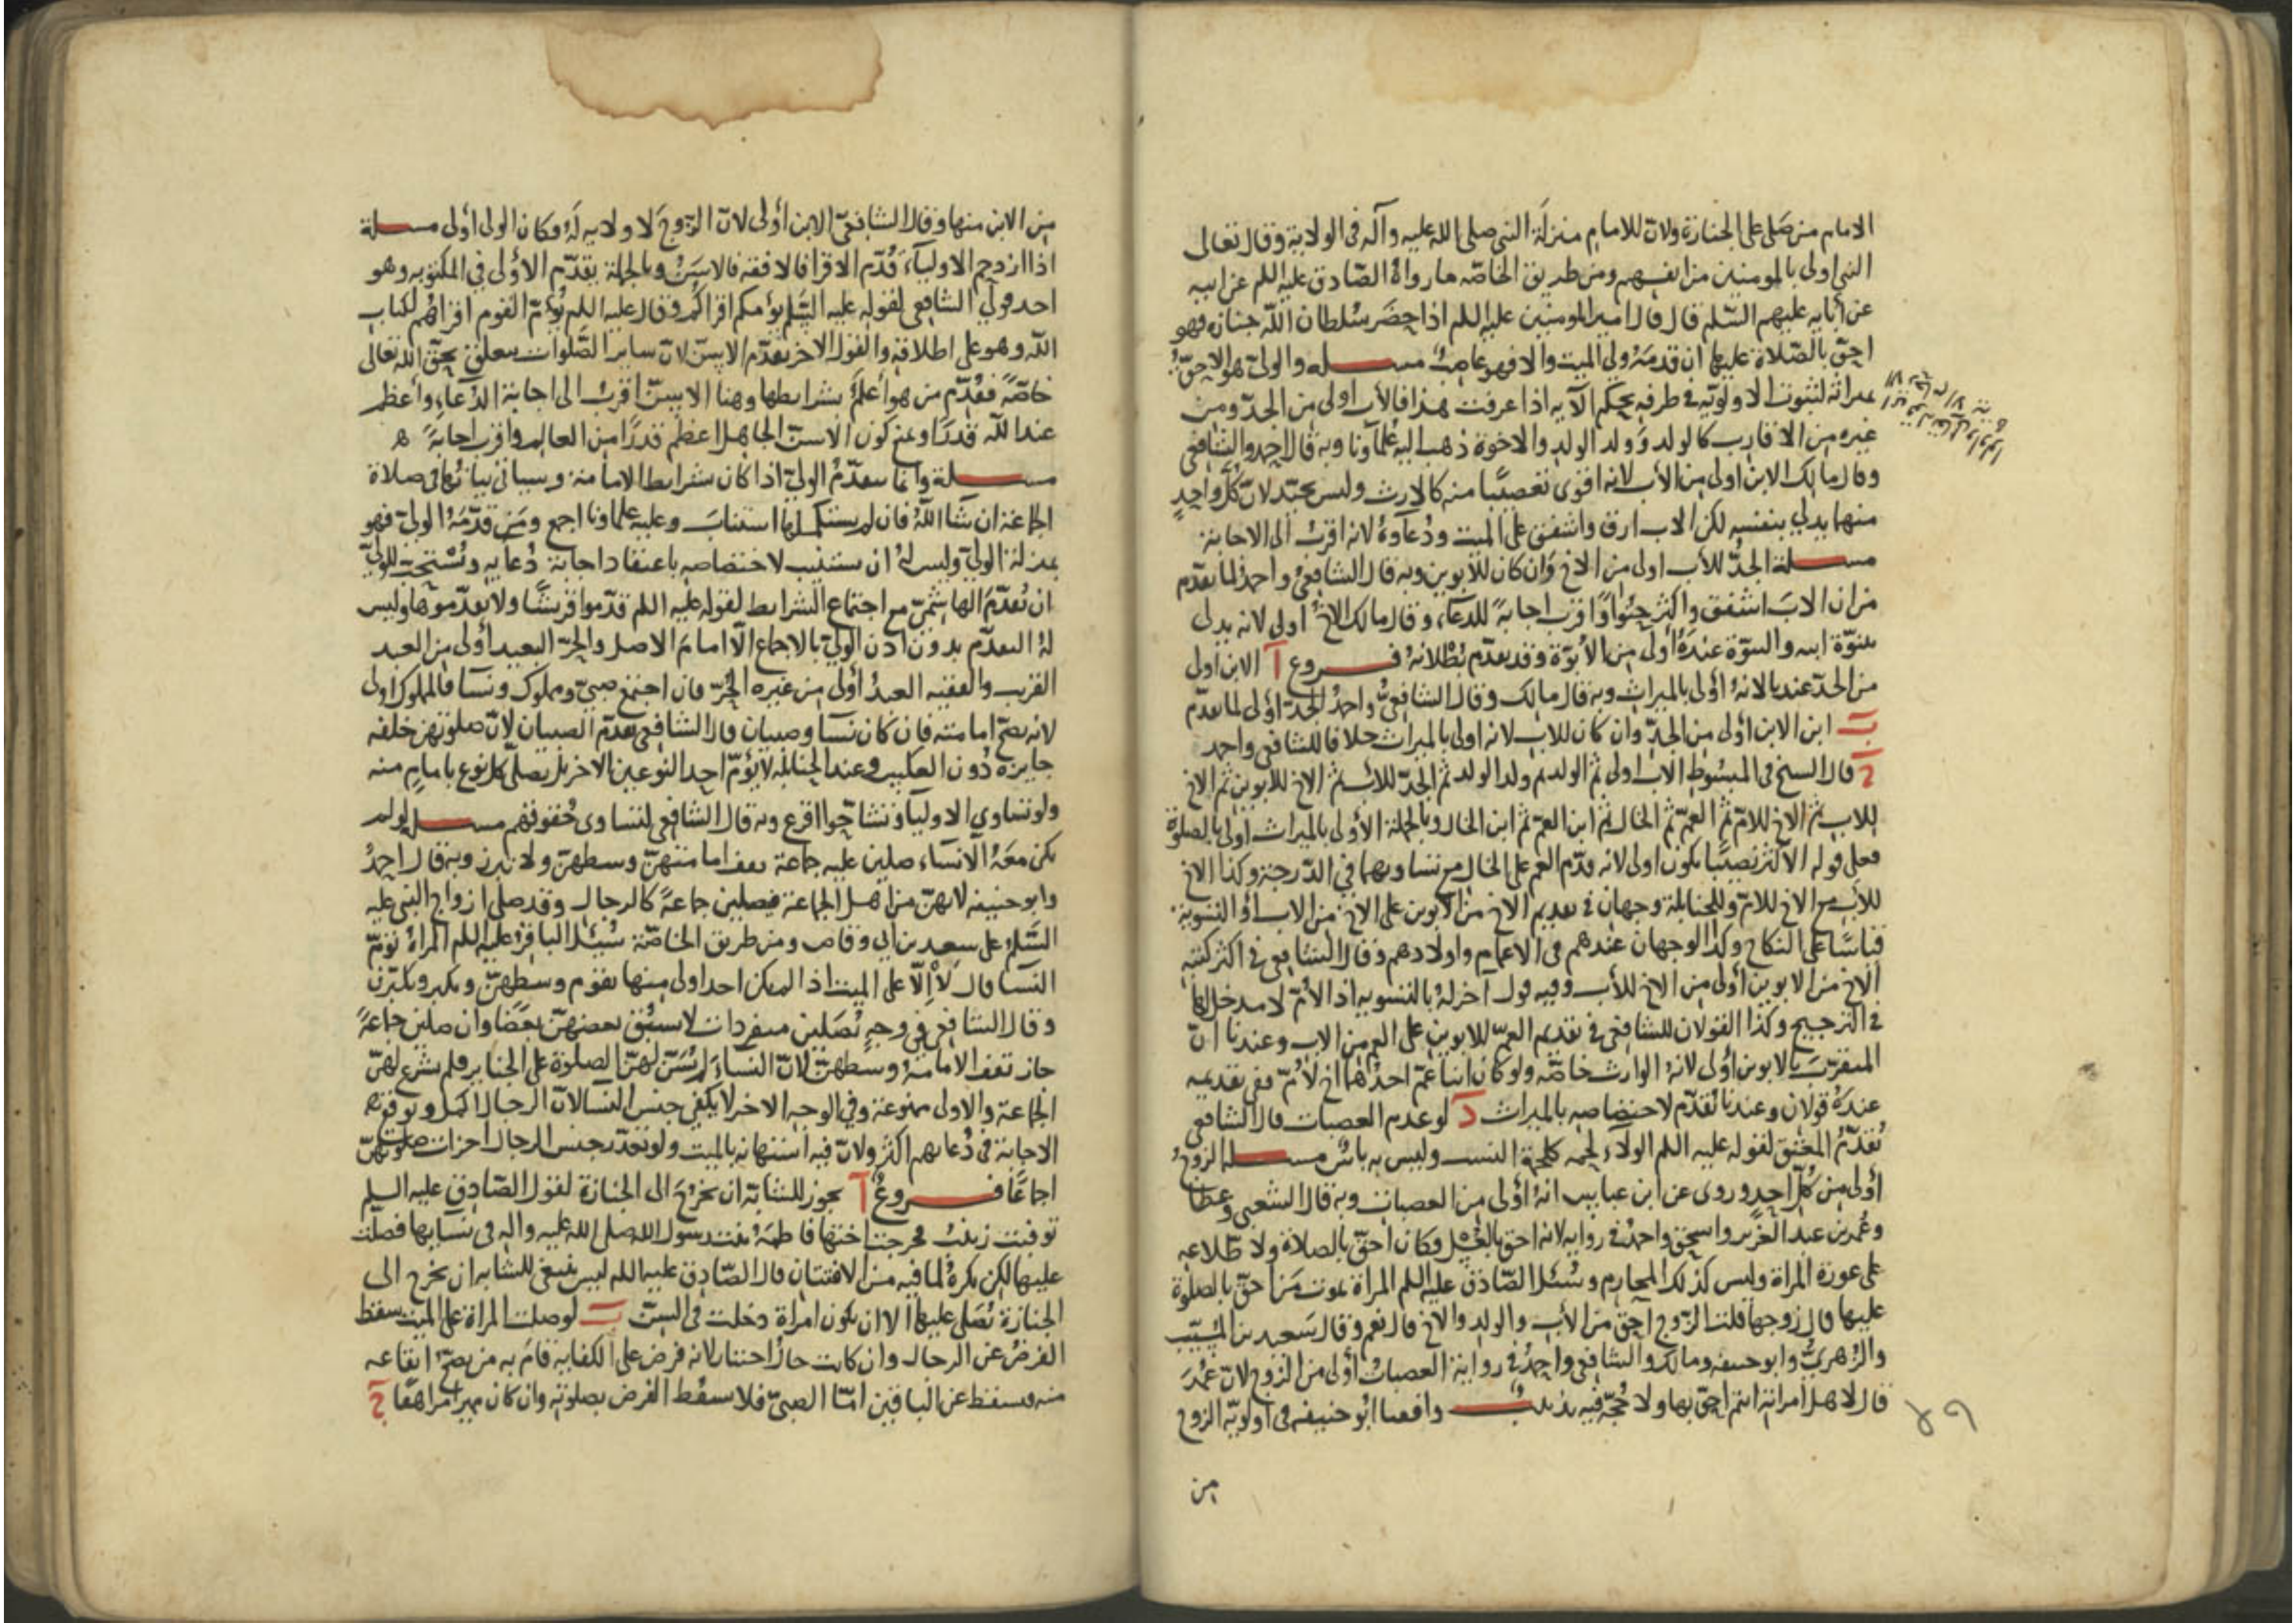 الامام من صلى على الجنازة ولان للامام منزلة النبي صلى الله عليه وآله في الولاية وقال تعالى
النبي اولى بالمومنين من انفسهم ومن طريق الخاصة ما رواه الصادق عليه السلم عن ابيه
عن آبايه عليهم السلم قال قال امير المومنين عليه السلم اذا حضر سلطان الله جنازة فهو
احق بالصلاة عليها ان قدمه ولي الميت والا فهو غاصب مسلة والولي هو الاحق
بميراثه لثبوت الاولوية في طرفه بحكم الآية اذا عرفت هذا فالأب اولى من الجد ومن
غيره من الاقارب كالولد وولد الولد والاخوة ذهب اليه علماؤنا وبه قال احمد والشافعي
وقال مالك الابن اولى من الأب لانه اقوى تعصيبا منه كالارث وليس بجيد لان كل واحد
منهما يدلي بنفسه لكن الاب ارق واشفق على الميت ودعاوه لانه اقرب الى الاجابة
مسلة الجد للأب اولى من الاخ وان كان للأبوين وبه قال الشافعي واحمد لما تقدم
من ان الاب اشفق واكثر حنوا واقرب اجابة للدعاء وقال مالك الاخ أولى لانه يدلي
ببنوة ابيه والبنوة عنده أولى من الأبوة وقد تقدم بطلانه فروع آ الابن اولى
من الجد عندنا لانه أولى بالميراث وبه قال مالك وقال الشافعي واحمد الجد أولى لما تقدم
ب ابن الابن أولى من الجد وان كان للاب لانه اولى بالميراث خلافا للشافعي واحمد
ج قال الشيخ في المبسوط الاب اولى ثم الولد ثم ولد الولد ثم الجد للاب ثم الاخ للأبوين ثم الاخ
للاب ثم الاخ للام ثم العم ثم الخال ثم ابن العم ثم ابن الخال وبالجملة الأولى بالميراث أولى بالصلوة
فعلى قوله الاكثر نصيبا يكون اولى لانه قدم العم على الخال مع تساويهما في الدرجة وكذا الاخ
للأب مع الاخ للام وللحنابلة وجهان في تقديم الاخ من الأبوين على الاخ من الاب أو التسوية
قياسا على النكاح وكذا الوجهان عندهم في الاعمام واولادهم وقال الشافعي في اكثر كتبه
الاخ من الابوين أولى من الاخ للأب وفيه قول آخر له بالتسوية اذ الأم لا مدخل لها
في الترجيح وكذا القولان للشافعي في تقديم العم للابوين على العم من الاب وعندنا ان
المتقرب بالابوين أولى لانه الوارث خاصة ولو كان ابنا عم احدهما اخ لأم ففي تقديمه
عنده قولان وعندنا تقدم لاختصاصه بالميراث د لو عدم العصبات قال الشافعي
يقدم المعتق لقوله عليه السلم الولاء لحمة كلحمة النسب وليس به باس مسلة الزوج
أولى من كل احد وروى عن ابن عباس انه أولى من العصبات وبه قال الشعبي وعطا
وعمر بن عبد العزيز واسحق واحمد في رواية لانه احق بالغسل فكان احق بالصلاة ولاطلاعه
على عورة المراة وليس كذلك المحارم وسئل الصادق عليه السلم المراة تموت من احق بالصلوة
عليها قال زوجها قلت الزوج احق من الأب والولد والاخ قال نعم وقال سعيد بن المسيب
والزهري وابو حنيفة ومالك والشافعي واحمد في رواية العصبات أولى من الزوج لان عمر
قال لاهل امراته انتم احق بها ولا حجة فيه تذنيب وافقنا ابو حنيفة في اولوية الزوج
من
من الابن منها وقال الشافعي الابن أولى لان الزوج لا ولاية له فكان الولي أولى مسلة
اذا ازدحم الاولياء قدم الاقرا فالافقه فالاسن وبالجملة يقدم الأولى في المكتوبة وهو
احد قولي الشافعي لقوله عليه السلم يؤمكم اقراكم وقال عليه السلم يؤم القوم اقراهم لكتاب
الله وهو على اطلاقه والقول الاخر يقدم الاسن لان ساير الصلوات يتعلق بحق الله تعالى
خاصة فقدم من هو أعلم بشرايطها وهنا الاسن اقرب الى اجابة الدعاء وأعظم
عند الله قدرا ونمنع كون الاسن الجاهل اعظم قدرا من العالم واقرب اجابة
مسلة وانما يتقدم الولي اذا كان بشرايط الامامة وسياتي بيانها في صلاة
الجماعة ان شا الله فان لم يستكملها استناب وعليه علماونا اجمع ومن قدمه الولي فهو
بمنزلة الولي وليس له ان يستنيب لاختصاصه باعتقاد اجابة دعايه ويستحب للولي
ان يقدم الهاشمي مع اجتماع الشرايط لقوله عليه السلم قدموا قريشا ولا تقدموها وليس
له التقدم بدون اذن الولي بالاجماع الا امام الاصل والحر البعيد أولى من العبد
القريب والفقيه العبد أولى من غيره الحر فان اجتمع صبي ومملوك ونسا فالمملوك اولى
لانه تصح امامته فان كان نسا وصبيان قال الشافعي يقدم الصبيان لان صلوتهن خلفه
جايزة دون العكس وعند الحنابلة لا يؤم احد النوعين الاخر بل يصلي كل نوع بامام منه
ولو تساوى الاوليا وتشاحوا اقرع وبه قال الشافعي لتساوى حقوقهم مسلة لو لم
يكن معه الا نساء صلين عليه جماعة تقف امامتهن وسطهن ولا تبرز وبه قال احمد
وابو حنيفة لانهن من اهل الجماعة فيصلين جماعة كالرجال وقد صلى ازواج النبي عليه
السلم على سعد بن ابي وقاص ومن طريق الخاصة سئل الباقر عليه السلم المراة تؤم
النسا قال لا إلا على الميت اذا لم يكن احد اولى منها تقوم وسطهن وتكبر ويكبرن
وقال الشافعي في وجه يصلين منفردات لا يسبق بعضهن بعضا وان صلين جماعة
جاز تقف الامامة وسطهن لان النساء لم يسن لهن الصلوة على الجنايز فلم يشرع لهن
الجماعة والاولى ممنوعة وفي الوجه الاخر لا يكفي جنس النسا لان الرجال اكمل وتوقع
الاجابة في دعايهم اكثر ولان فيه استهانة بالميت ولو تعذر جنس الرجال اجزات صلوتهن
اجماعا فروع آ يجوز للشابة ان تخرج الى الجنازة لقول الصادق عليه السلم
توفيت زينب فخرجت اختها فاطمة بنت رسول الله صلى الله عليه واله في نسايها فصلت
عليها لكن يكره لما فيه من الافتتان قال الصادق عليه السلم ليس ينبغي للشابة ان تخرج الى
الجنازة تصلي عليها الا ان تكون امراة دخلت في السن ب لو صلت المراة على الميت سقط
الفرض عن الرجال وان كانت حال اختيار لانه فرض على الكفاية قام به من يصح ايقاعه
منه فيسقط عن الباقين اما الصبي فلا يسقط الفرض بصلوته وان كان مميزا مراهقا ج